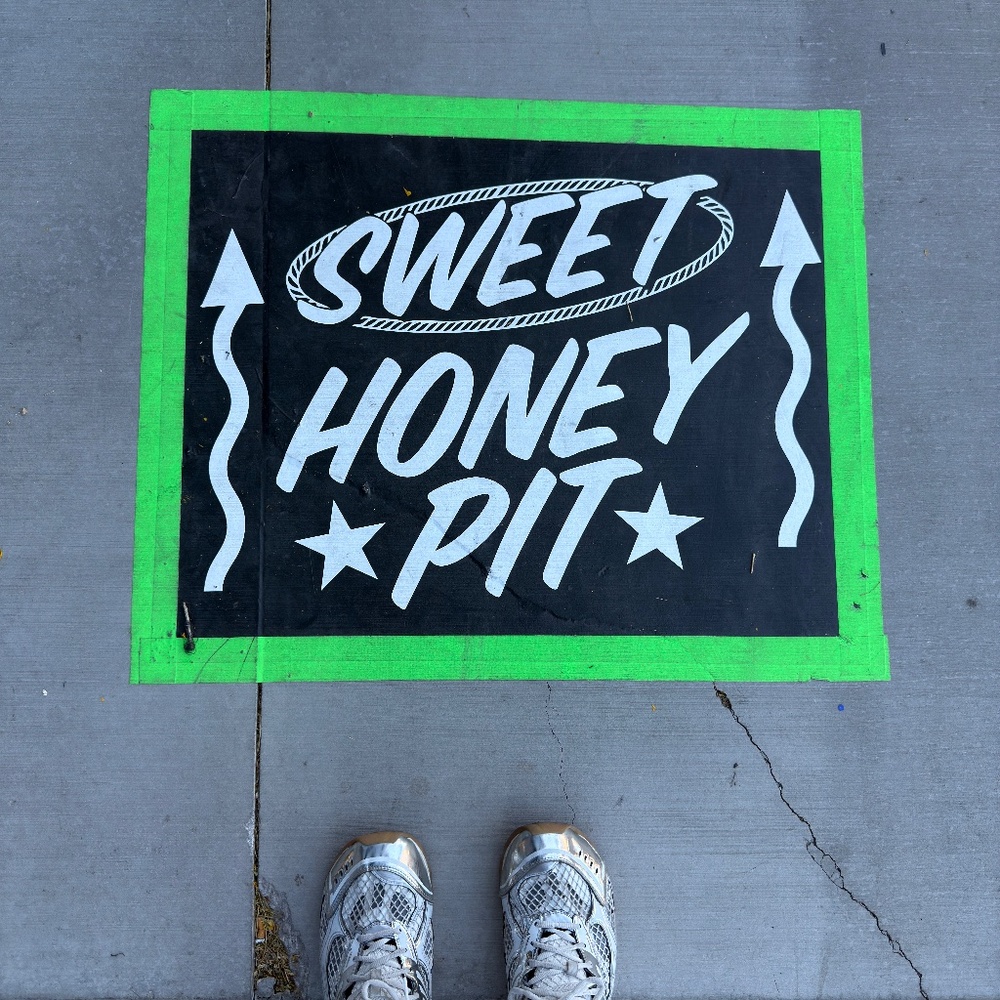 SWEET
HONEY
PIT